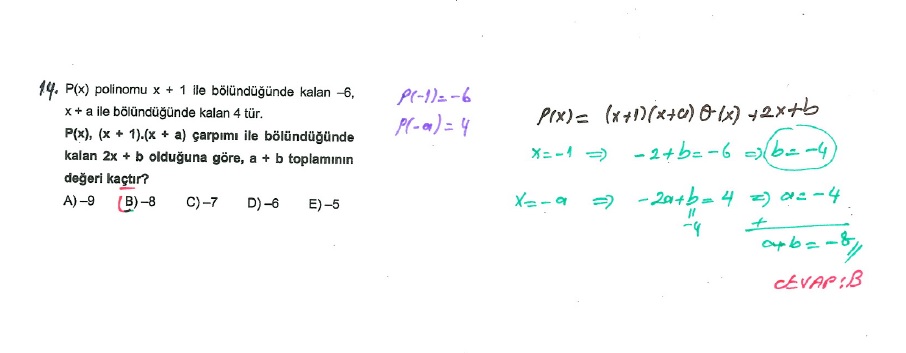 14. P(x) polinomu x + 1 ile bölündüğünde kalan –6,
x + a ile bölündüğünde kalan 4 tür.
P(x), (x + 1).(x + a) çarpımı ile bölündüğünde
kalan 2x + b olduğuna göre, a + b toplamının
değeri kaçtır?
A) –9 B) –8 C) –7 D) –6 E) –5
P(-1)=-6
P(-a)=4
P(x)= (x+1)(x+a) Q(x) +2x+b
x=-1 ⇒ -2+b=-6 ⇒ b=-4
x=-a ⇒ -2a+b=4 ⇒ a=-4
=
-4
+
a+b=-8//
CEVAP:B